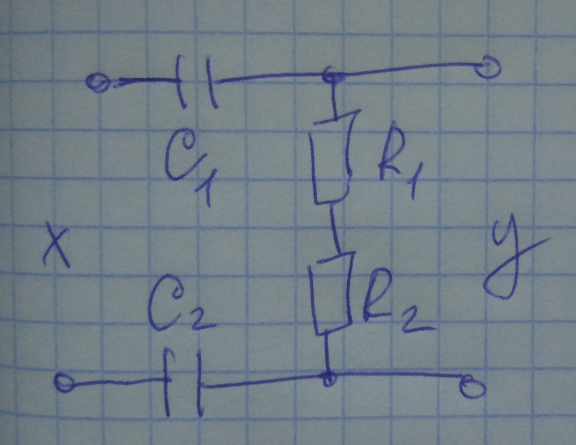 C1
R1
x
y
C2
R2